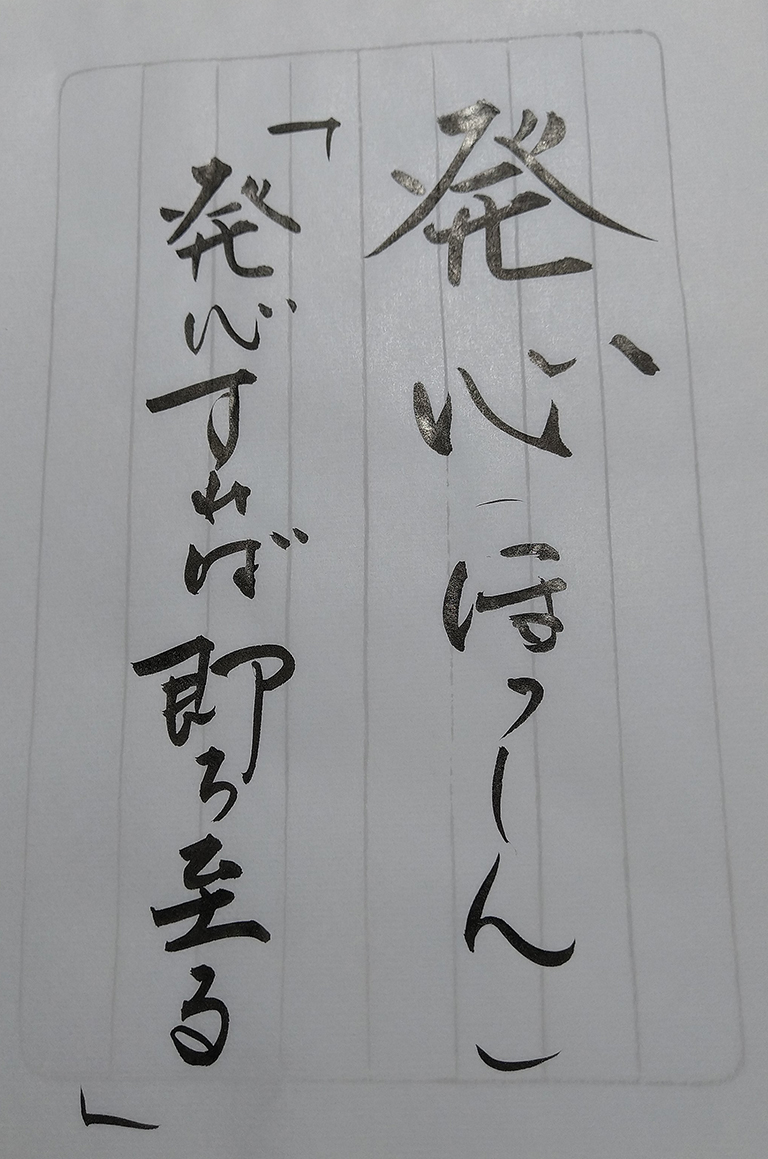 発心（ほっしん）
「発心すれば即ち至る」